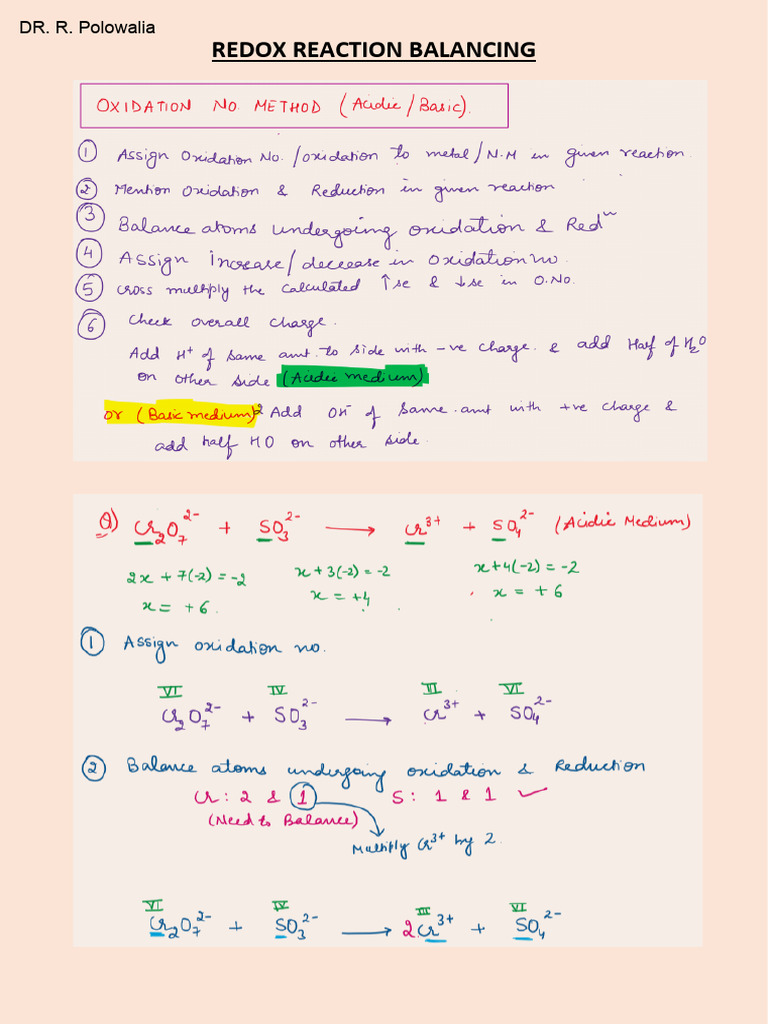 DR. R. Polowalia
REDOX REACTION BALANCING
OXIDATION NO. METHOD (Acidic/Basic).
① Assign Oxidation No./oxidation to metal/N.M in given reaction.
② Mention Oxidation & Reduction in given reaction
③ Balance atoms undergoing oxidation & Redⁿ
④ Assign Increase/decrease in Oxidation no.
⑤ Cross multiply the calculated ↑se & ↓se in O.No.
⑥ Check overall charge.
Add H⁺ of same amt. to side with -ve charge. & add Half of H₂O
on other side (Acidic medium)
or (Basic medium) 2 Add OH⁻ of same amt with +ve charge &
add half HO on other side.
Q) Cr₂O₇²⁻ + SO₃²⁻ → Cr³⁺ + SO₄²⁻ (Acidic Medium)
2x + 7(-2) = -2 x + 3(-2) = -2 x + 4(-2) = -2
x = +6. x = +4 x = +6
① Assign oxidation no.
VI IV III VI
Cr₂O₇²⁻ + SO₃²⁻ → Cr³⁺ + SO₄²⁻
② Balance atoms undergoing oxidation & Reduction
Cr : 2 & 1 S : 1 & 1 ✓
(Need to Balance)
Multiply Cr³⁺ by 2.
VI IV III VI
Cr₂O₇²⁻ + SO₃²⁻ → 2Cr³⁺ + SO₄²⁻